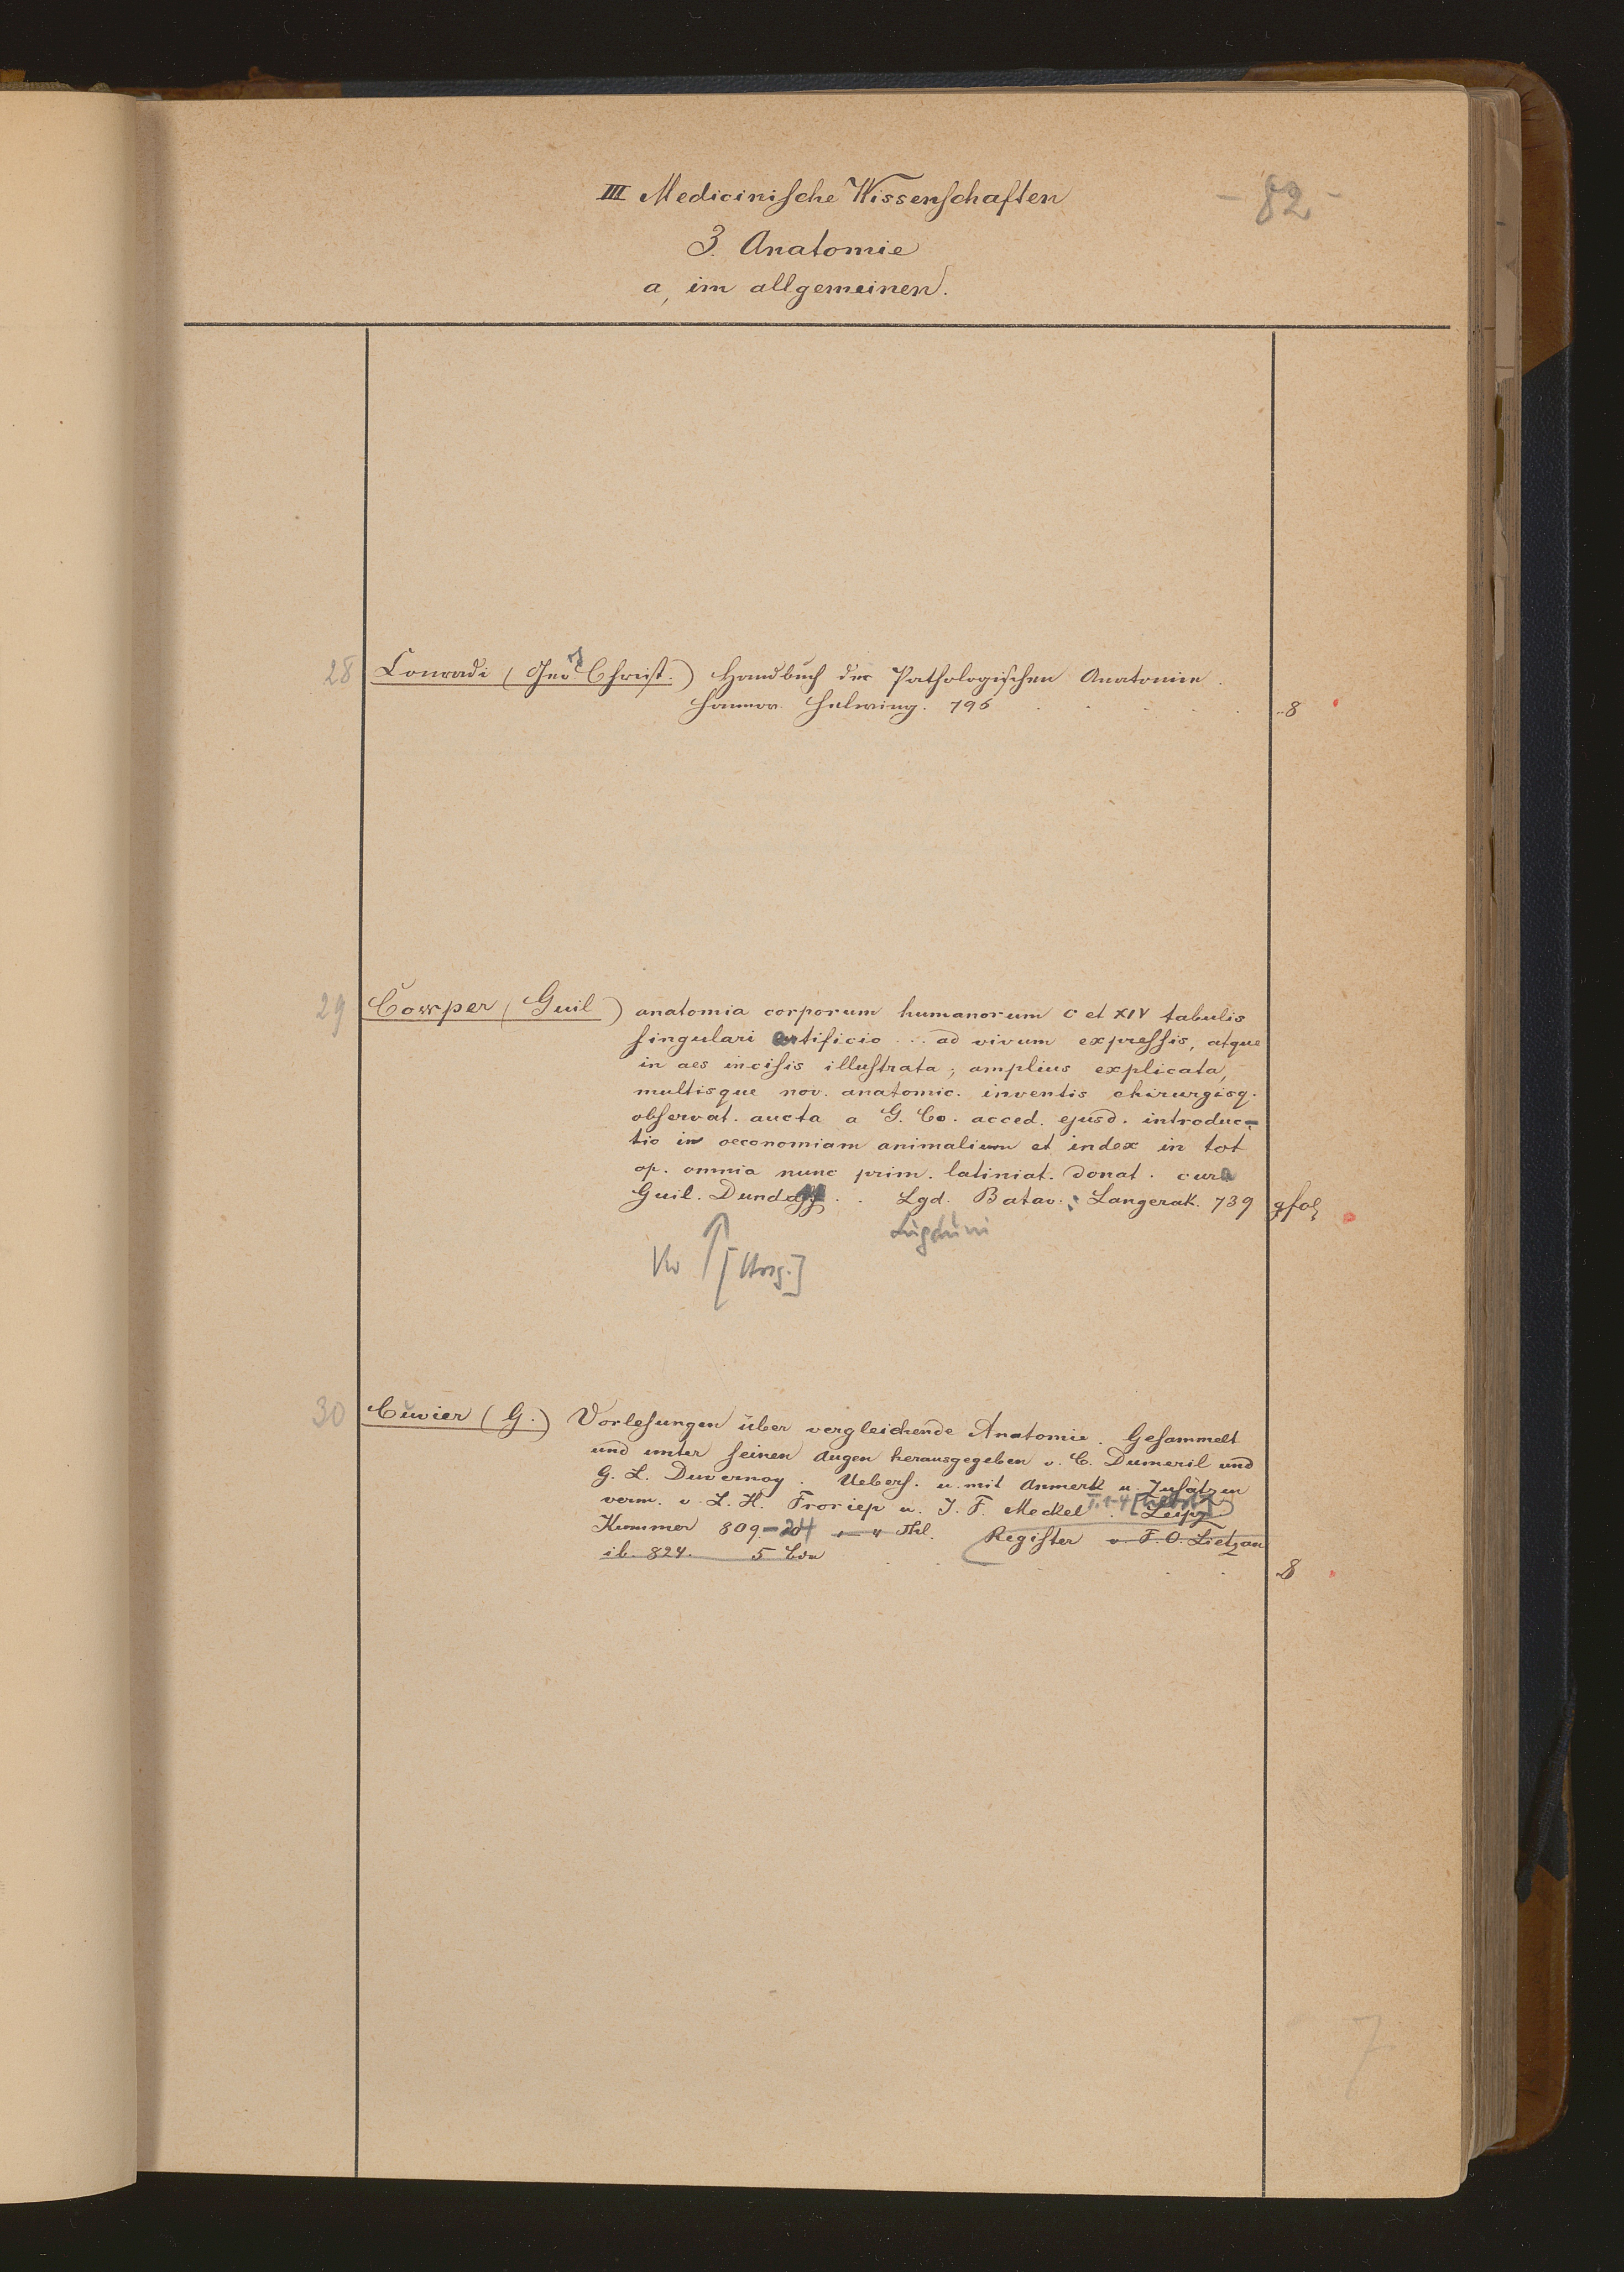 III Medicinische Wissenschaften
- 82 -
3. Anatomie
a, im allgemeinen.
28 Conradi (Geo Christ.) Handbuch der Pathologischen Anatomie.
Hannov. Helwing. 795 8
29 Cowper (Guil) anatomia corporum humanorum C et XIV tabulis
singulari artificio ... ad vivum expressis, atque
in aes incisis illustrata; amplius explicata,
multisque nov. anatomic. inventis chirurgisq.
observat. aucta a G. Co. acced. ejusd. introduc=
tio in oeconomiam animalium et index in tot
op. omnia nunc prim. latiniat. donat. cura
Guil. . . Lgd. Batav.; Langerak. 739 gfol
Lugduni
30 Cuvier (G.) Vorlesungen über vergleichende Anatomie. Gesammelt
und unter seinen Augen herausgegeben v. C. Dumeril und
G. L. Duvernoy. Uebers. u. mit Anmerk u. Zusätzen
verm. v. L. H. Froriep u. J. F. Meckel T. 1-4 Leipz
Kummer 809-24 4 Thl. Register v. F. O. Lietzau
ib. 824. 5 Bde 8
7